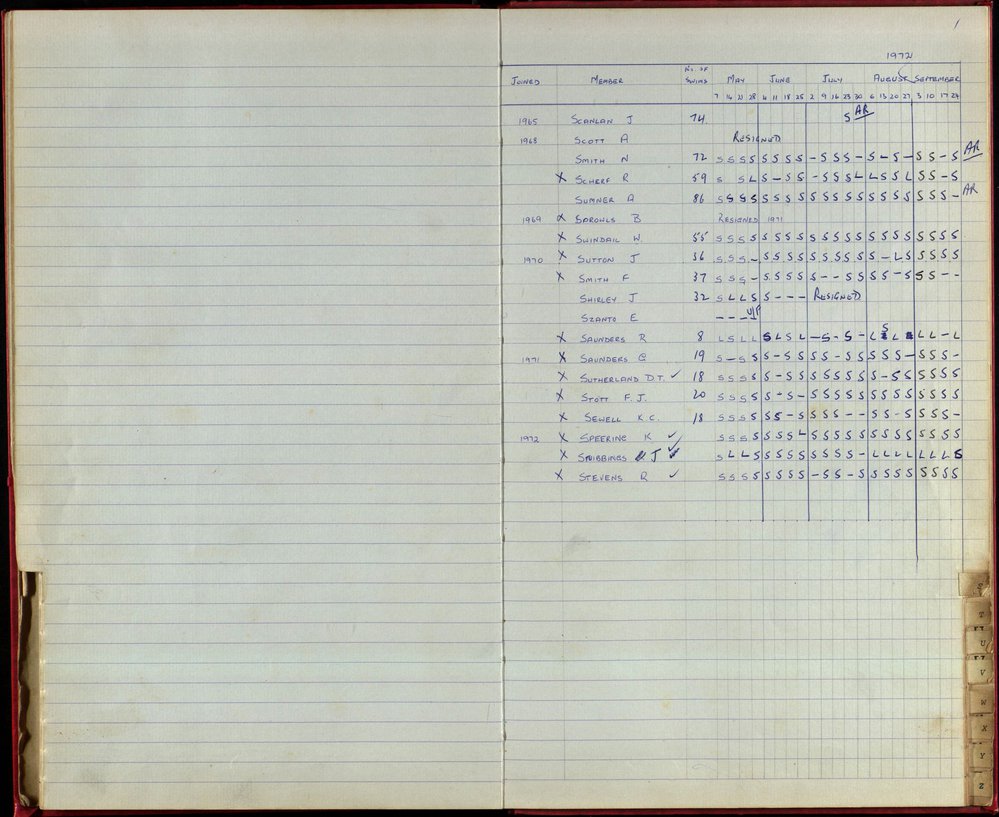 1
1972
JOINED MEMBER No. OF SWIMS MAY JUNE JULY AUGUST SEPTEMBER
7 14 21 28 4 11 18 25 2 9 16 23 30 6 13 20 27 3 10 17 24
1965 SCANLAN J 74 S AR
1968 SCOTT A RESIGNED
SMITH N 72 S S S S S S S S - S S S - S L S - S S - S AR
X SCHERF R 59 S S L S - S S - S S S L L S S L S S - S
SUMNER A 86 S S S S S S S S S S S S S S S S S S S S - AR
1969 X SPROWLS B RESIGNED 1971
X SWINDAIL W. 55 S S S S S S S S S S S S S S S S S S S S S
1970 X SUTTON J 36 S S S - S S S S S S S S S S - L S S S S S
X SMITH F 37 S S S - S S S S S - - S S S S - S S S - -
SHIRLEY J 32 S L L S S - - - RESIGNED
SZANTO E - - - U/F
X SAUNDERS R 8 L S L L S L S L - S - S - L S L L L - L
1971 X SAUNDERS G 19 S - S S S - S S S S - S S S S S - S S S -
X SUTHERLAND D.T. ✓ 18 S S S S S - S S S S S S S S - S S S S S S
X STOTT F.J. 20 S S S S S - S - S S S S S S S S S S S S S
X SEWELL K.C. 18 S S S S S S - S S S S - - S S - S S S S -
1972 X SPEERING K ✓ S S S S S S S L S S S S S S S S S S S S S
X STUBBINGS J ✓ S L L S S S S S S S S S - L L L L L L L S
X STEVENS R ✓ S S S S S S S S - S S - S S S S S S S S S
S
T
U
V
W
X
Y
Z